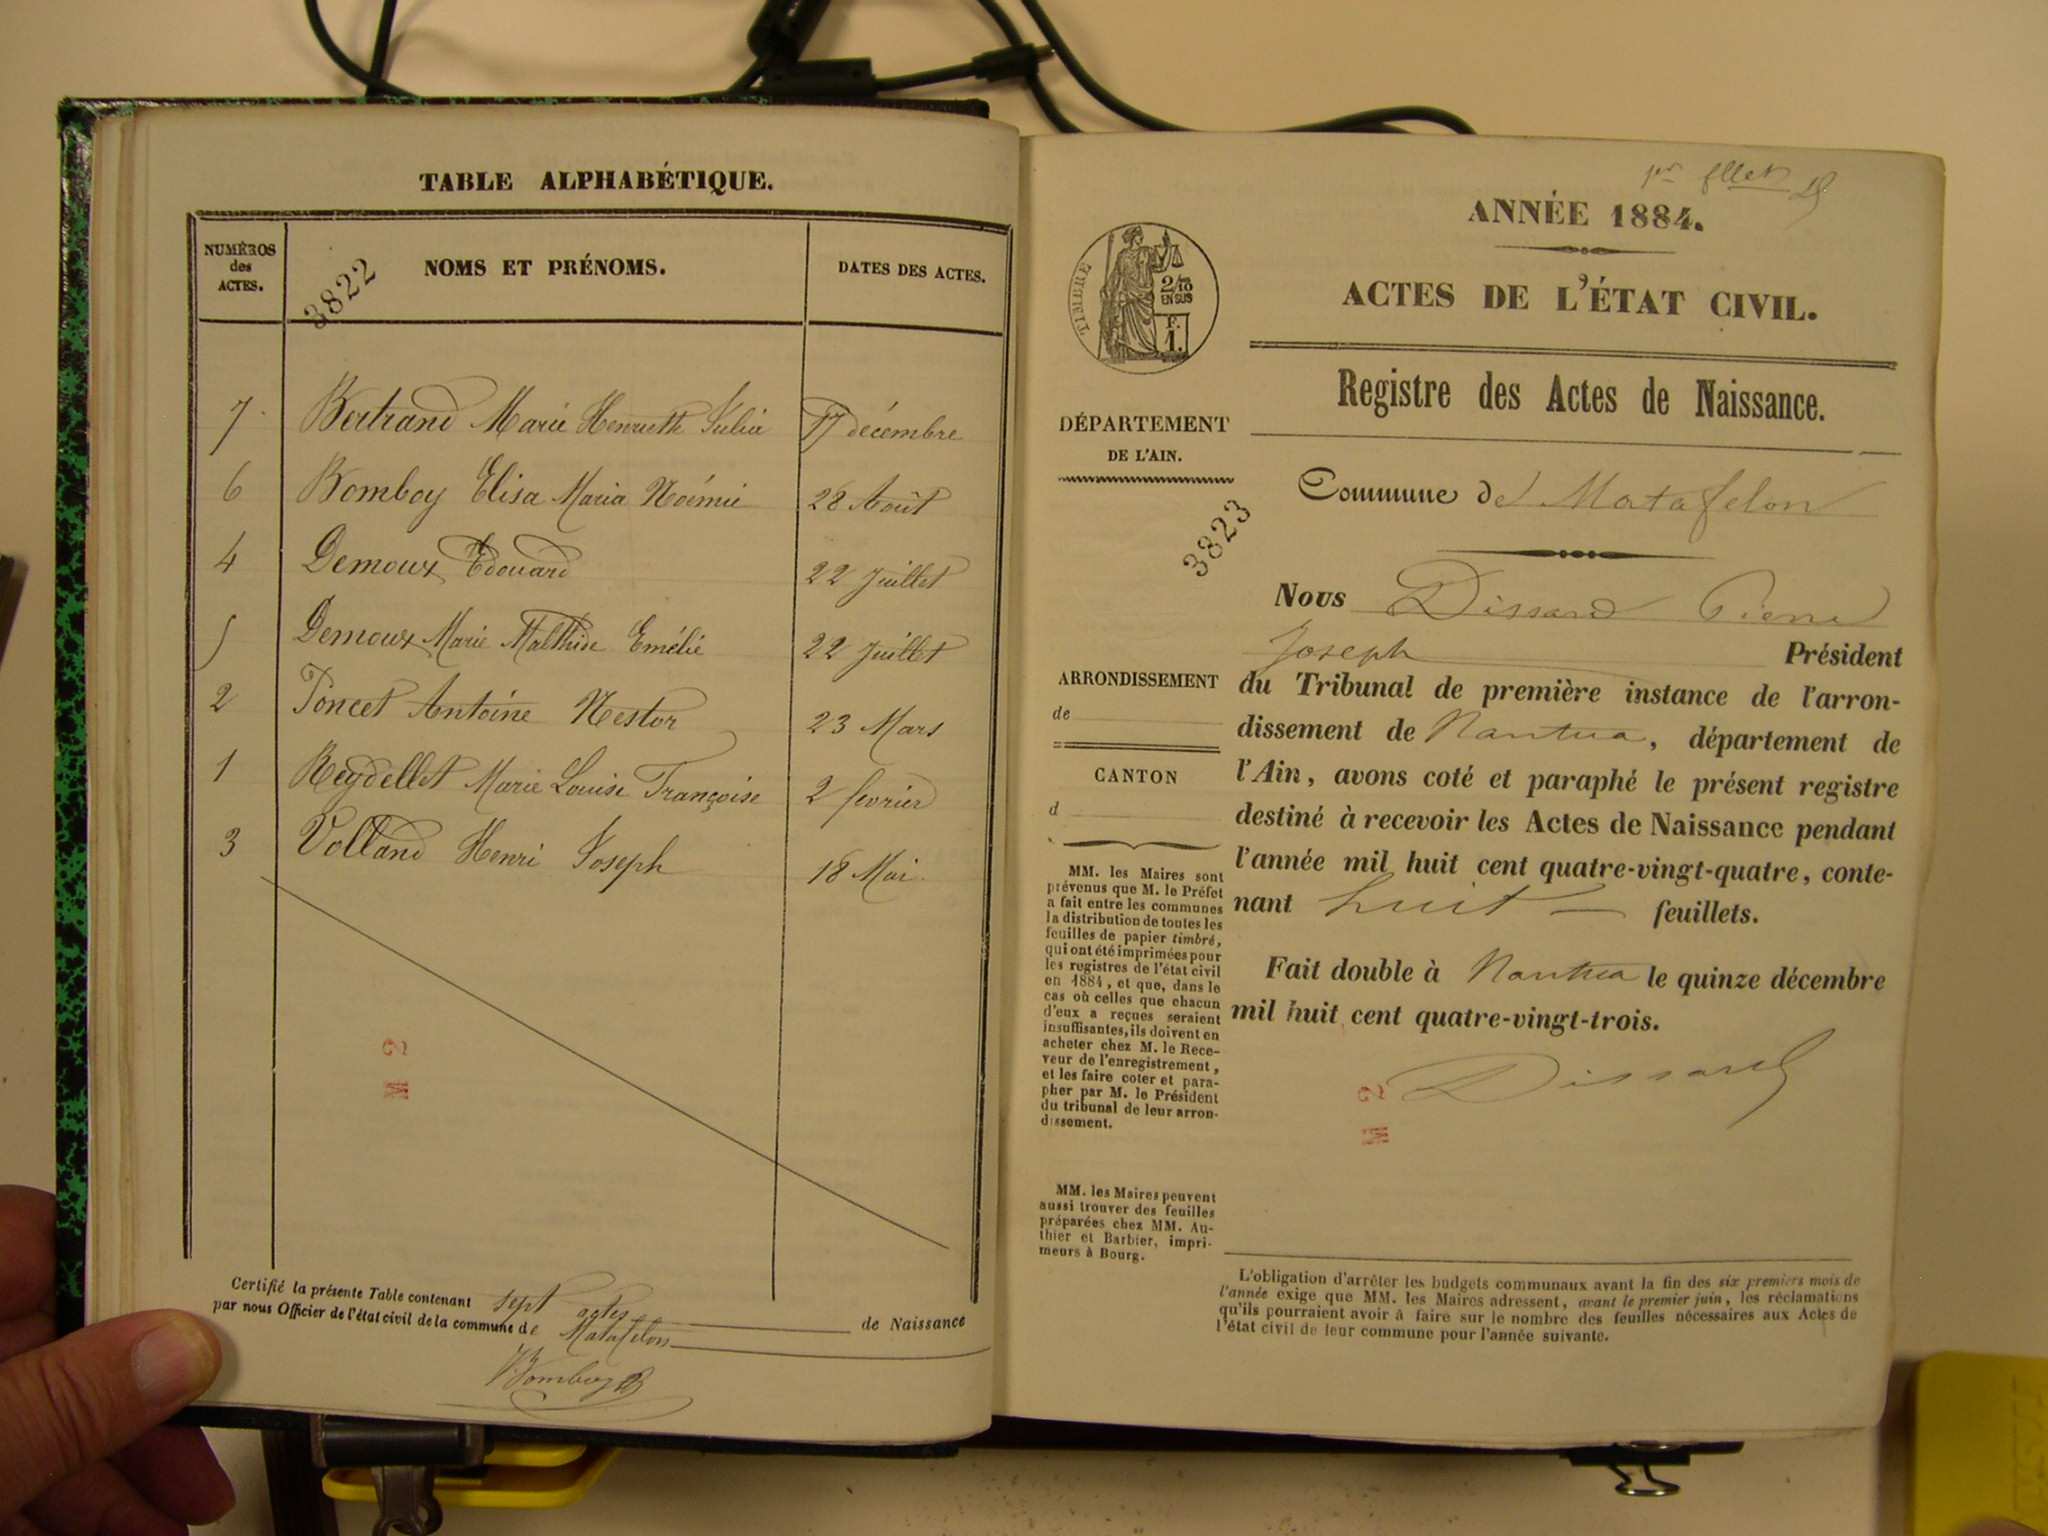 TABLE ALPHABÉTIQUE.
NUMÉROS
des
ACTES.
3822
NOMS ET PRÉNOMS.
DATES DES ACTES.
7 Bertrand Marie Henrieth Julia 17 décembre
6 Bomboy Elisa Maria Noémie 28 Août
4 Demoux Edouard 22 Juillet
5 Demoux Marie Malthide Emélie 22 Juillet
2 Poncet Antoine Nestor 23 Mars
1 Reydellet Marie Louise Françoise 2 fevrier
3 Volland Henri Joseph 18 Mai
M 2
Certifié la présente Table contenant sept actes de Naissance
par nous Officier de l'état civil de la commune de Matafelon
Bomboy
1er f
ANNÉE 1884.
ACTES DE L'ÉTAT CIVIL.
TIMBRE
2/10
EN SUS
F.
1.
Registre des Actes de Naissance.
DÉPARTEMENT
DE L'AIN.
Commune de Matafelon
3823
Nous Dissard Pierre
Joseph Président
du Tribunal de première instance de l'arron-
dissement de Nantua, département de
l'Ain, avons coté et paraphé le présent registre
destiné à recevoir les Actes de Naissance pendant
l'année mil huit cent quatre-vingt-quatre, conte-
nant huit feuillets.
Fait double à Nantua le quinze décembre
mil huit cent quatre-vingt-trois.
Dissard
M 2
ARRONDISSEMENT
de
CANTON
d
MM. les Maires sont
prévenus que M. le Préfet
a fait entre les communes
la distribution de toutes les
feuilles de papier timbré,
qui ont été imprimées pour
les registres de l'état civil
en 1884, et que, dans le
cas où celles que chacun
d'eux a reçues seraient
insuffisantes, ils doivent en
acheter chez M. le Rece-
veur de l'enregistrement,
et les faire coter et para-
pher par M. le Président
du tribunal de leur arron-
dissement.
MM. les Maires peuvent
aussi trouver des feuilles
préparées chez MM. Au-
thier et Barbier, impri-
meurs à Bourg.
L'obligation d'arrêter les budgets communaux avant la fin des six premiers mois de
l'année exige que MM. les Maires adressent, avant le premier juin, les réclamations
qu'ils pourraient avoir à faire sur le nombre des feuilles nécessaires aux Actes de
l'état civil de leur commune pour l'année suivante.